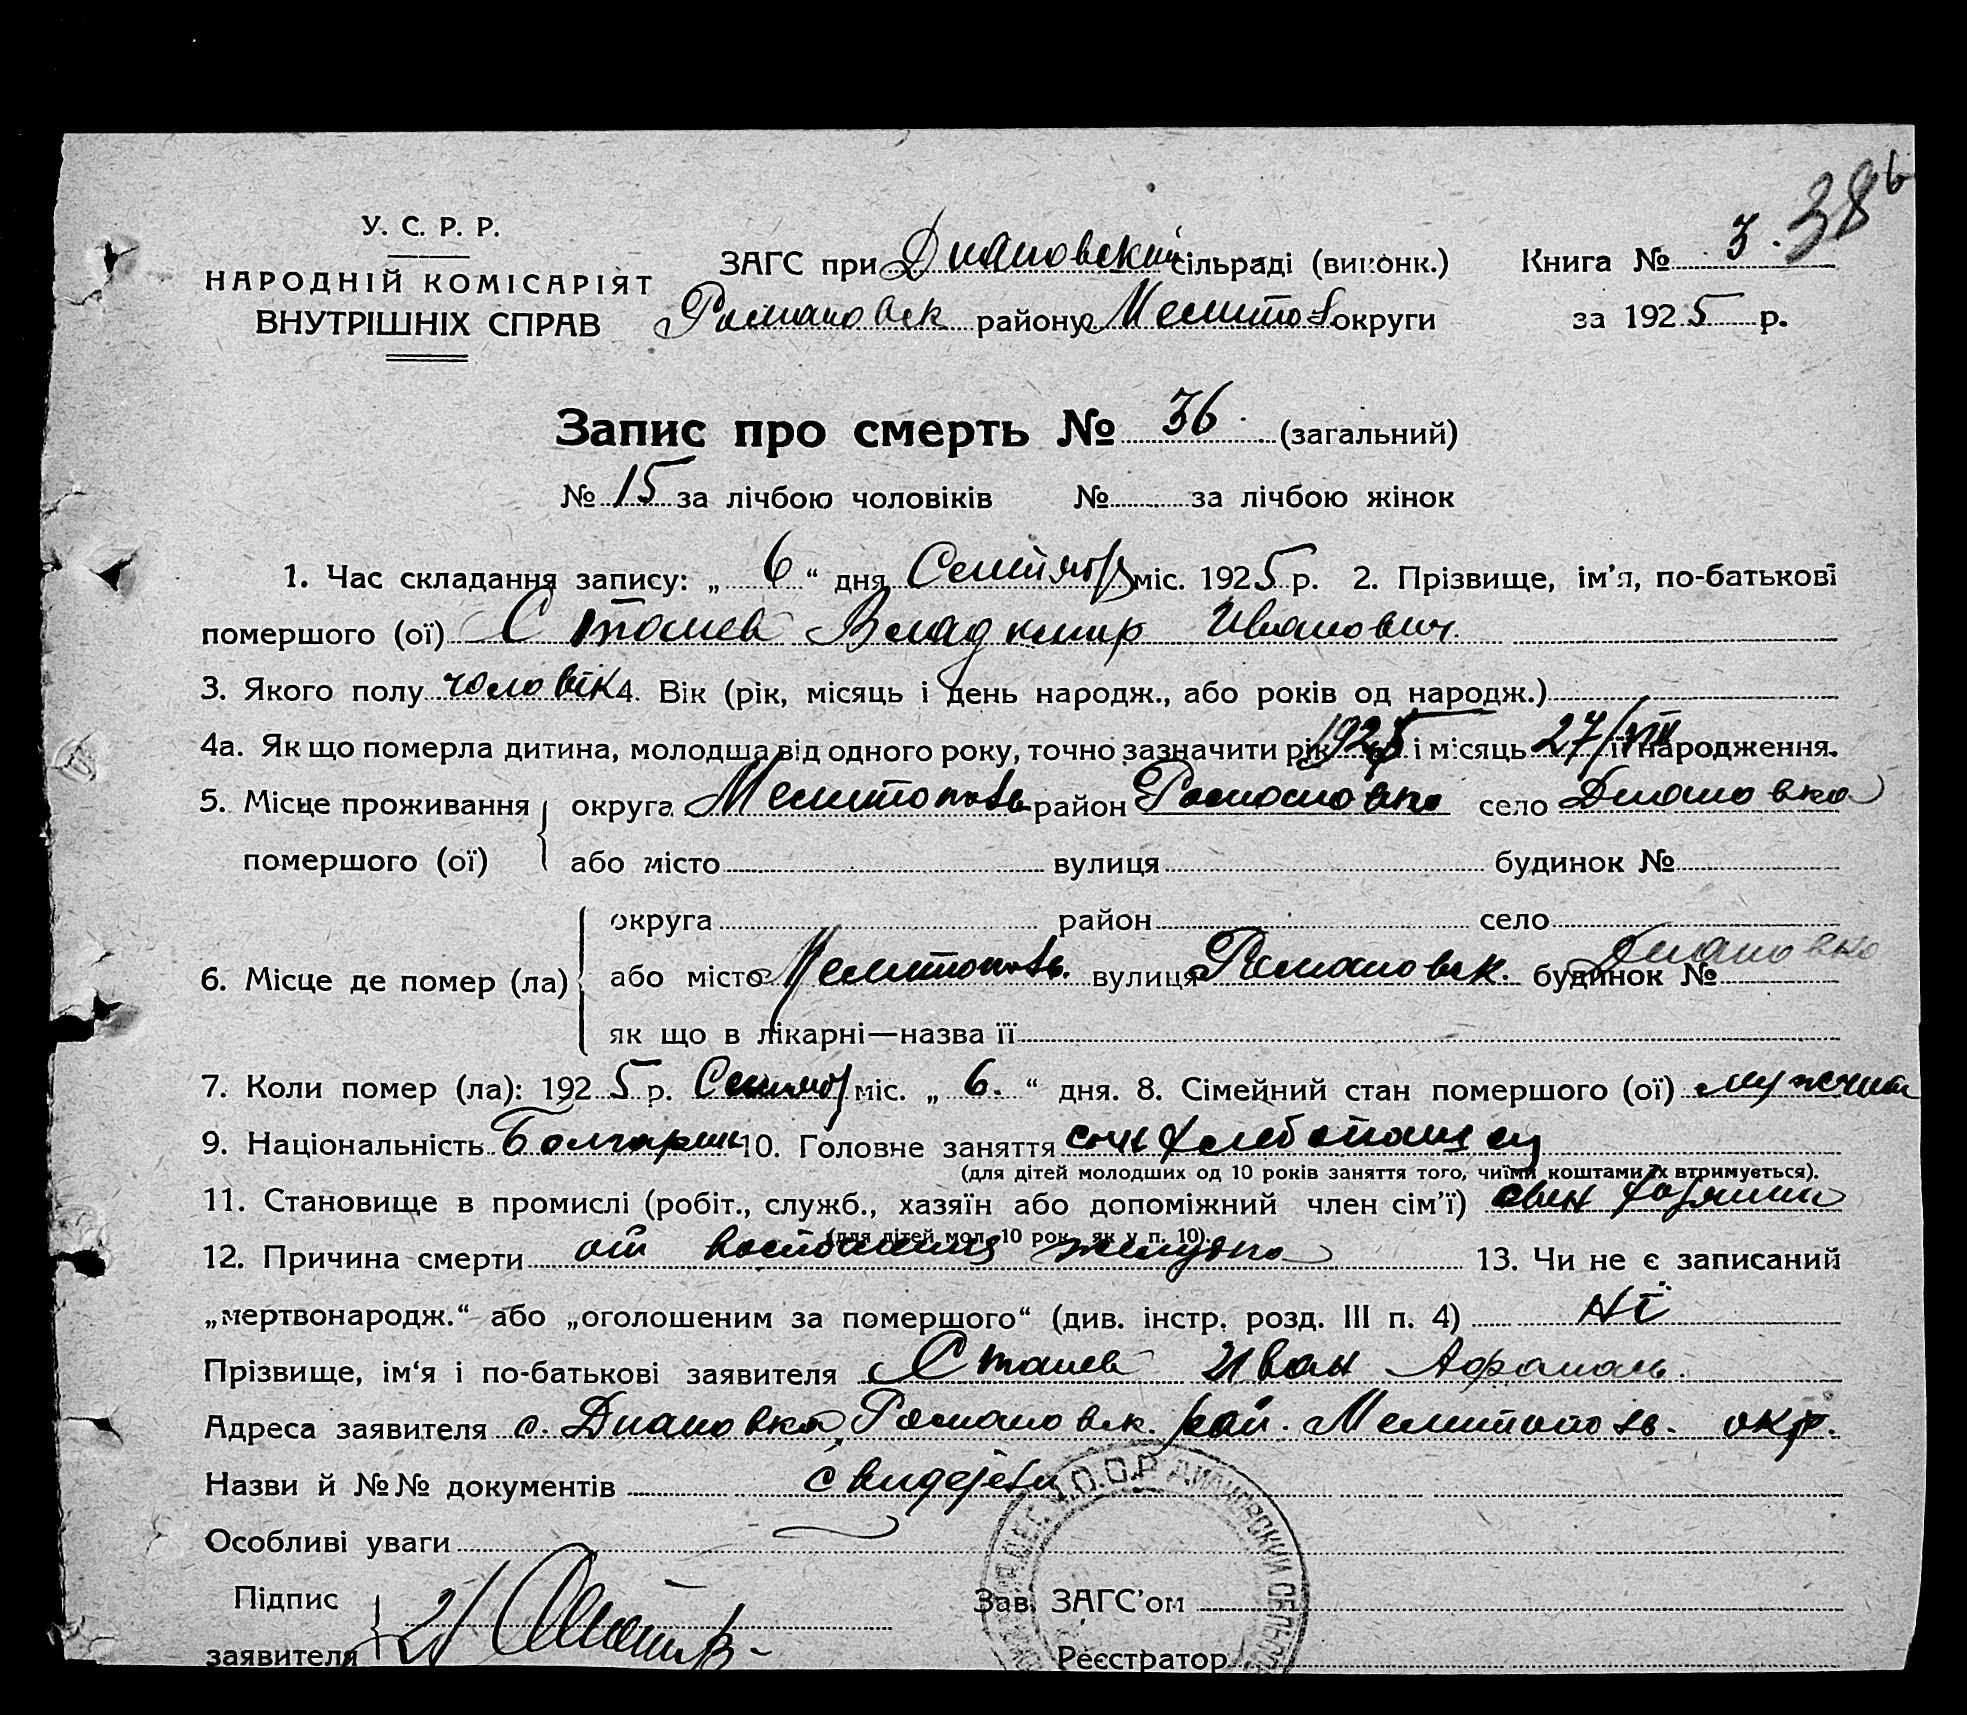 38б
У. С. Р. Р.
НАРОДНІЙ КОМІСАРІЯТ
ВНУТРІШНІХ СПРАВ
ЗАГС при Диановский сільраді (виконк.)
Романовск району Мелитоп округи
Книга № 3.
за 1925 р.
Запис про смерть № 36. (загальний)
№ 15 за лічбою чоловіків № за лічбою жінок
1. Час складання запису: „ 6 “ дня Сентябр міс. 1925 р. 2. Прізвище, ім'я, по-батькові
помершого (ої) Стоиев Владимир Иванович
3. Якого полу чоловік 4. Вік (рік, місяць і день народж., або років од народж.)
4а. Як що померла дитина, молодша від одного року, точно зазначити рік 1925 і місяць 27/VIII її народження.
5. Місце проживання помершого (ої) округа Мелитополь район Романовка село Диановка
або місто вулиця будинок №
6. Місце де помер (ла) округа район село
або місто Мелитополь. вулиця Романовск. будинок № Диановка
як що в лікарні—назва її
7. Коли помер (ла): 1925 р. Сентябр міс. „ 6. “ дня. 8. Сімейний стан помершого (ої) мужчина
9. Національність Болгарин 10. Головне заняття сын хлебопашец
(для дітей молодших од 10 років заняття того, чиїми коштами їх втримується).
11. Становище в промислі (робіт., служб., хазяїн або допоміжний член сім'ї)
(для дітей мол. 10 рок. як у п. 10).
12. Причина смерти от воспаления желудка 13. Чи не є записаний
„мертвонародж.“ або „оголошеним за помершого“ (див. інстр. розд. III п. 4) Ні
Прізвище, ім'я і по-батькові заявителя Стоиев Иван
Адреса заявителя с. Диановка, Романовск. рай. Мелитополь. окр.
Назви й №№ документів
Особливі уваги
Підпис заявителя
Зав. ЗАГС'ом
Реєстратор